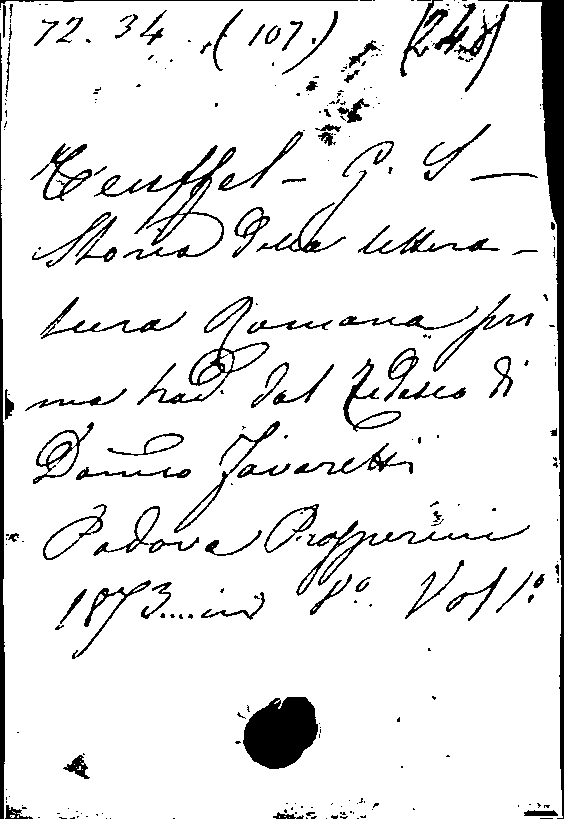 72. 34 (107.) (248)
Teuffel – G. S –
Storia della lettera –
tura Romana pri
ma trad. dal tedesco di
Domco Favaretti
Padova Prosperini
1873....in 8º. Vol 1º